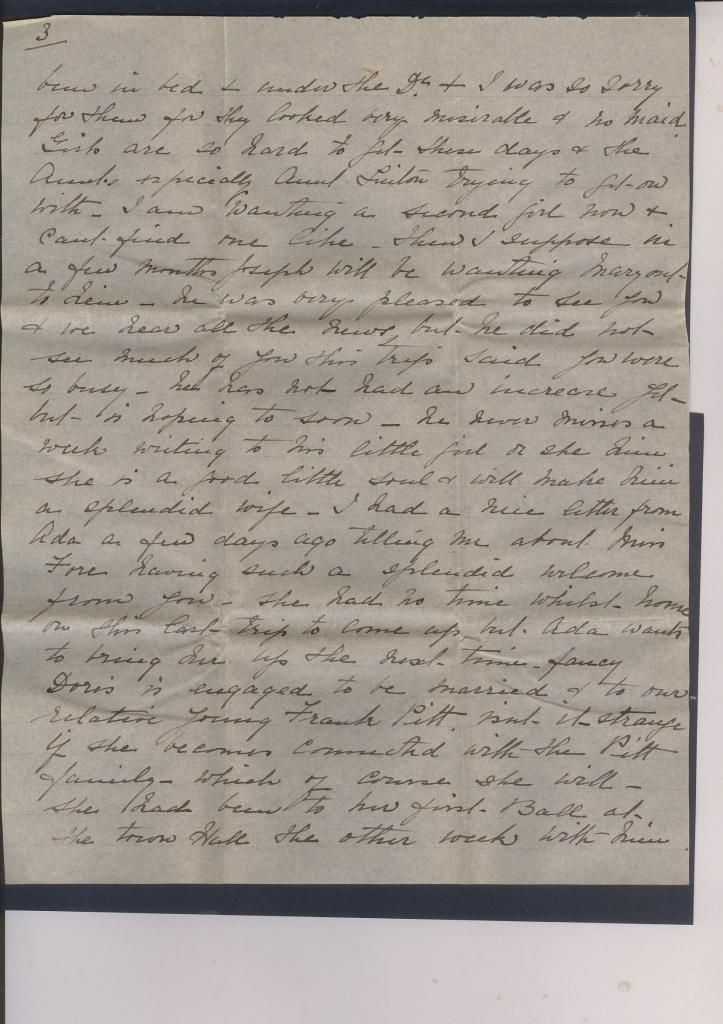 3
been in bed & under the Dr & I was so sorry
for them for they looked very miserable & no maid
Girls are so hard to get these days & the
Aunts especially Aunt Linton trying to get on
with - I am wanting a second girl now &
cant find one like - then I suppose in
a few months Joseph will be wanting Mary out
to him - he was very pleased to see you
& we hear all the news, but he did not
see much of you this trip said you were
so busy - he has not had an increase yet
but is hoping to soon - he never misses a
week writing to his little girl or she him
she is a good little soul & will make him
a splendid wife - I had a nice letter from
Ada a few days ago telling me about Miss
Fore having such a splendid welcome
from you - she had no time whilst home
on this last trip to come up, but Ada wants
to bring her up the next time - fancy
Doris is engaged to be married & to our
relative young Frank Pitt isnt it strange
if she becomes connected with the Pitt
family - which of course she will -
she had been to her first Ball at
the town Hall the other week with him